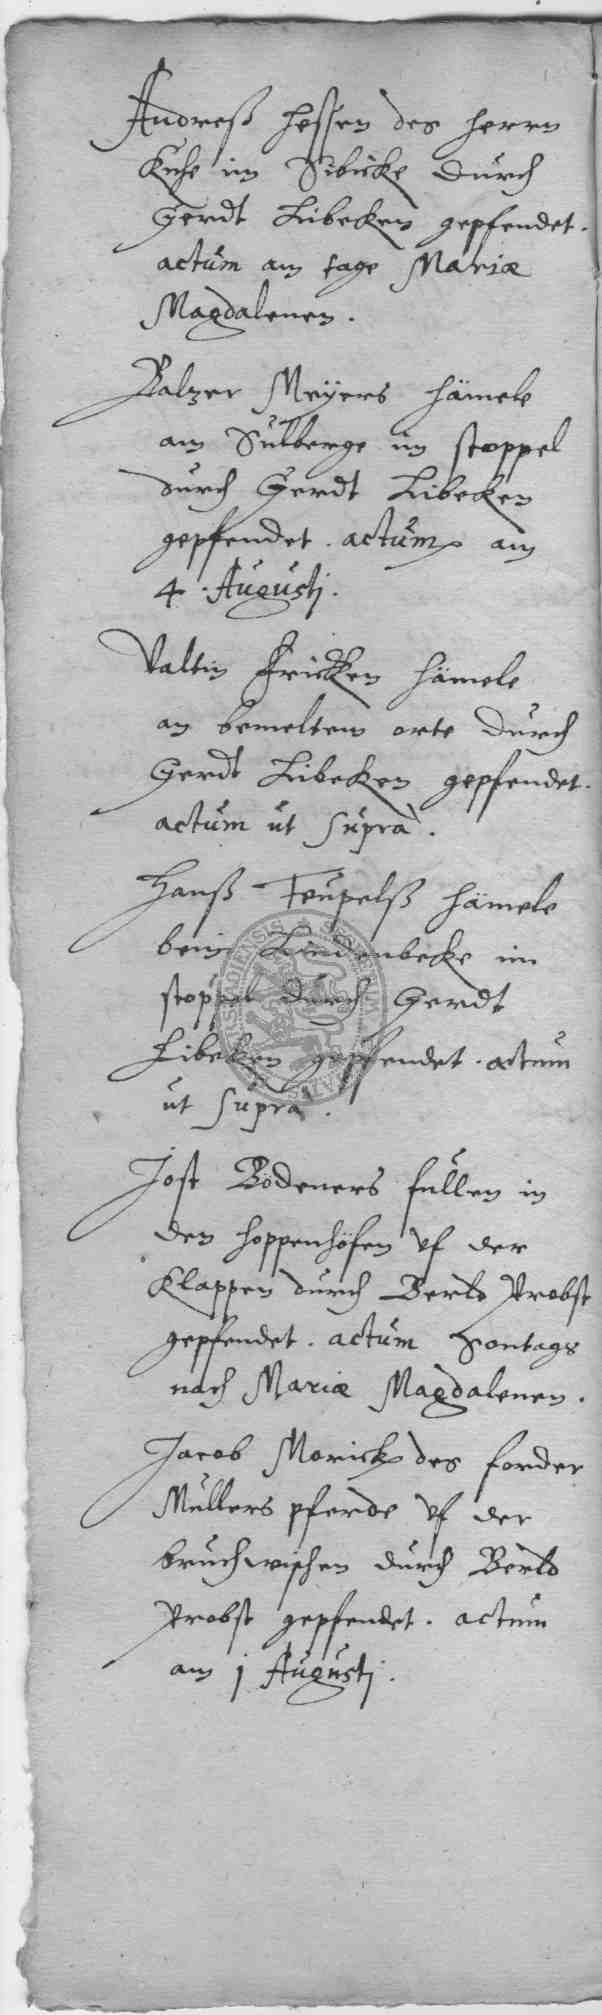 Andreß Hessen des Herrn
Kuhe im Sibicke durch
Gerdt Libeken gepfendet.
actum am tage Mariæ
Magdalenen.
Balzer Meÿers Hämele
am Sulberge im stoppel
durch Gerdt Libeken
gepfendet. actum am
4. Augusti.
Valtin Fricken Hämele
an bemeltem orte durch
Gerdt Libeken gepfendet.
actum ut suprà.
Hanß Teupelß Hämele
beim Lindenbeke im
stoppel durch Gerdt
Libeken gepfendet. actum
ut suprà.
Jost Bödeners fullen in
den hoppenhöfen uf der
Klappen durch Berld Probst
gepfendet. actum Sontags
nach Mariæ Magdalenen.
Jacob Morick des forder
Mullers pferde uf der
bruchwischen durch Berld
Probst gepfendet. actum
am 1 Augusti.